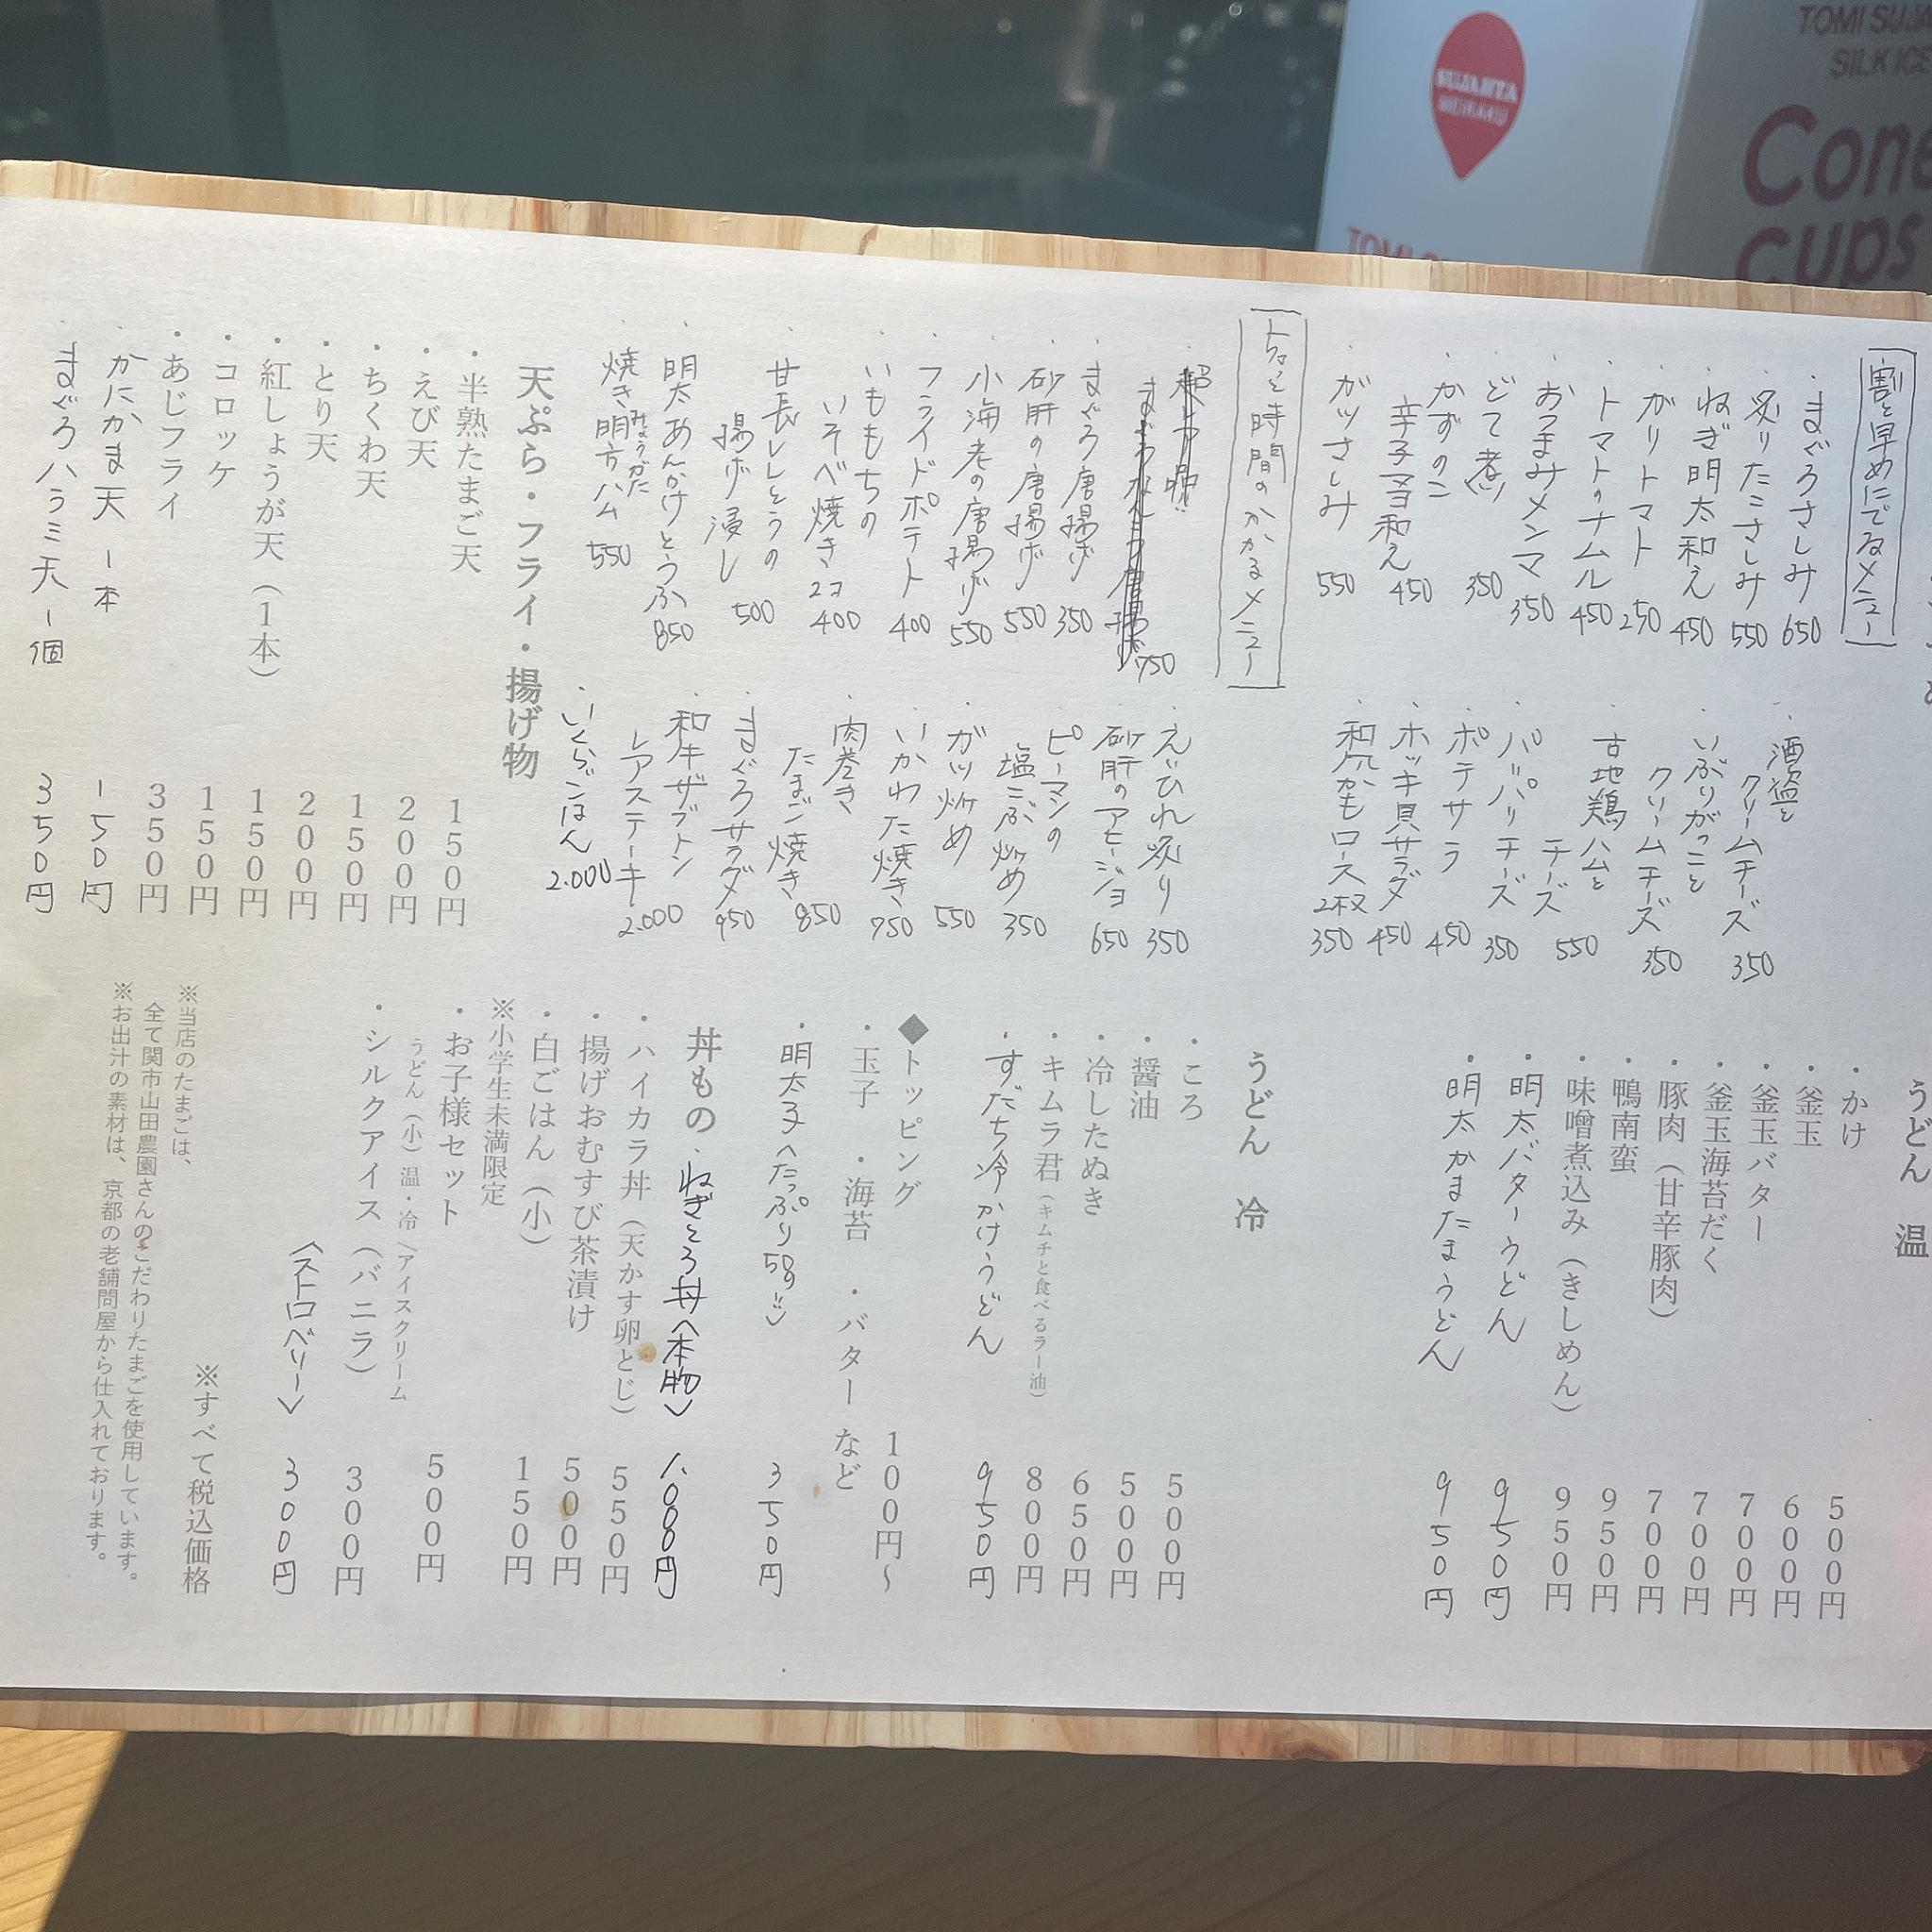 SUJAHTA
MEIRAKU
TOMI SUJA
SILK ICE
Cone
cups
割と早めにでるメニュー
・まぐろさしみ 650
・炙りたこさしみ 550
・ねぎ明太和え 450
・ガリトマト 250
・トマトのナムル 450
・おつまみメンマ 350
・どて煮 350
・かずのこ
辛子マヨ和え 450
・ガツさしみ 550
・酒盗と
クリームチーズ 350
・いぶりがっこと
クリームチーズ 350
・古地鶏ハムと
チーズ 550
・パリパリチーズ 350
・ポテサラ 450
・ホッキ貝サラダ 450
・和風かもロース 2枚 350
ちょっと時間のかかるメニュー
750
・まぐろ唐揚げ 350
・砂肝の唐揚げ 550
・小海老の唐揚げ 550
・フライドポテト 400
・いももちの
いそべ焼き 2コ 400
・甘長ししとうの
揚げ浸し 500
・明太あんかけとうふ 850
・焼き明方ハム 550
みょうがた
・えいひれ炙り 350
・砂肝のアヒージョ 650
・ピーマンの
塩こぶ炒め 350
・ガツ炒め 550
・いかわた焼き 750
・肉巻き
たまご焼き 850
・まぐろサラダ 950
・和牛ザブトン
レアステーキ 2.000
・いくらごはん 2.000
天ぷら・フライ・揚げ物
・半熟たまご天 150円
・えび天 200円
・ちくわ天 150円
・とり天 200円
・紅しょうが天（1本） 150円
・コロッケ 150円
・あじフライ 350円
・かにかま天 1本 150円
・まぐろハラミ天 1個 350円
うどん 温
・かけ 500円
・釜玉 600円
・釜玉バター 700円
・釜玉海苔だく 700円
・豚肉（甘辛豚肉） 700円
・鴨南蛮 950円
・味噌煮込み（きしめん） 950円
・明太バターうどん 950円
・明太かまたまうどん 950円
うどん 冷
・ころ 500円
・醤油 500円
・冷したぬき 650円
・キムラ君（キムチと食べるラー油） 800円
・すだち冷かけうどん 950円
◆トッピング 100円～
・玉子 ・海苔 ・バター など
・明太子〈たっぷり50g!!〉 350円
丼もの
・ねぎとろ丼〈本物〉 1.000円
・ハイカラ丼（天かす卵とじ） 550円
・揚げおむすび茶漬け 500円
・白ごはん（小） 150円
※小学生未満限定
・お子様セット 500円
うどん（小）温・冷／アイスクリーム
・シルクアイス（バニラ） 300円
〈ストロベリー〉 300円
※すべて税込価格
※当店のたまごは、
全て関市山田農園さんのこだわりたまごを使用しています。
※お出汁の素材は、京都の老舗問屋から仕入れております。